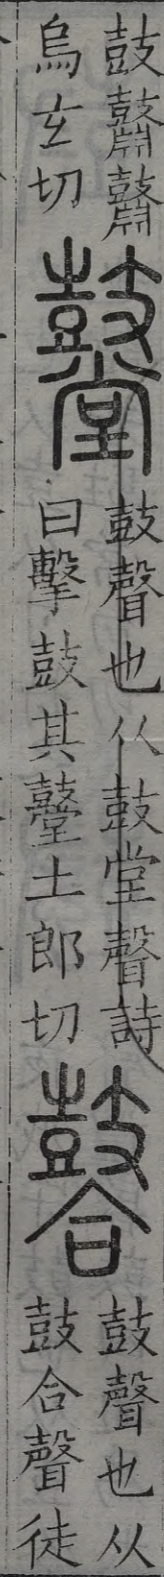 鼓鼘鼘
烏玄切
鼞
鼓聲也从鼓堂聲詩
曰擊鼓其鼞土郎切
𪔛
鼓聲也从
鼓合聲徒